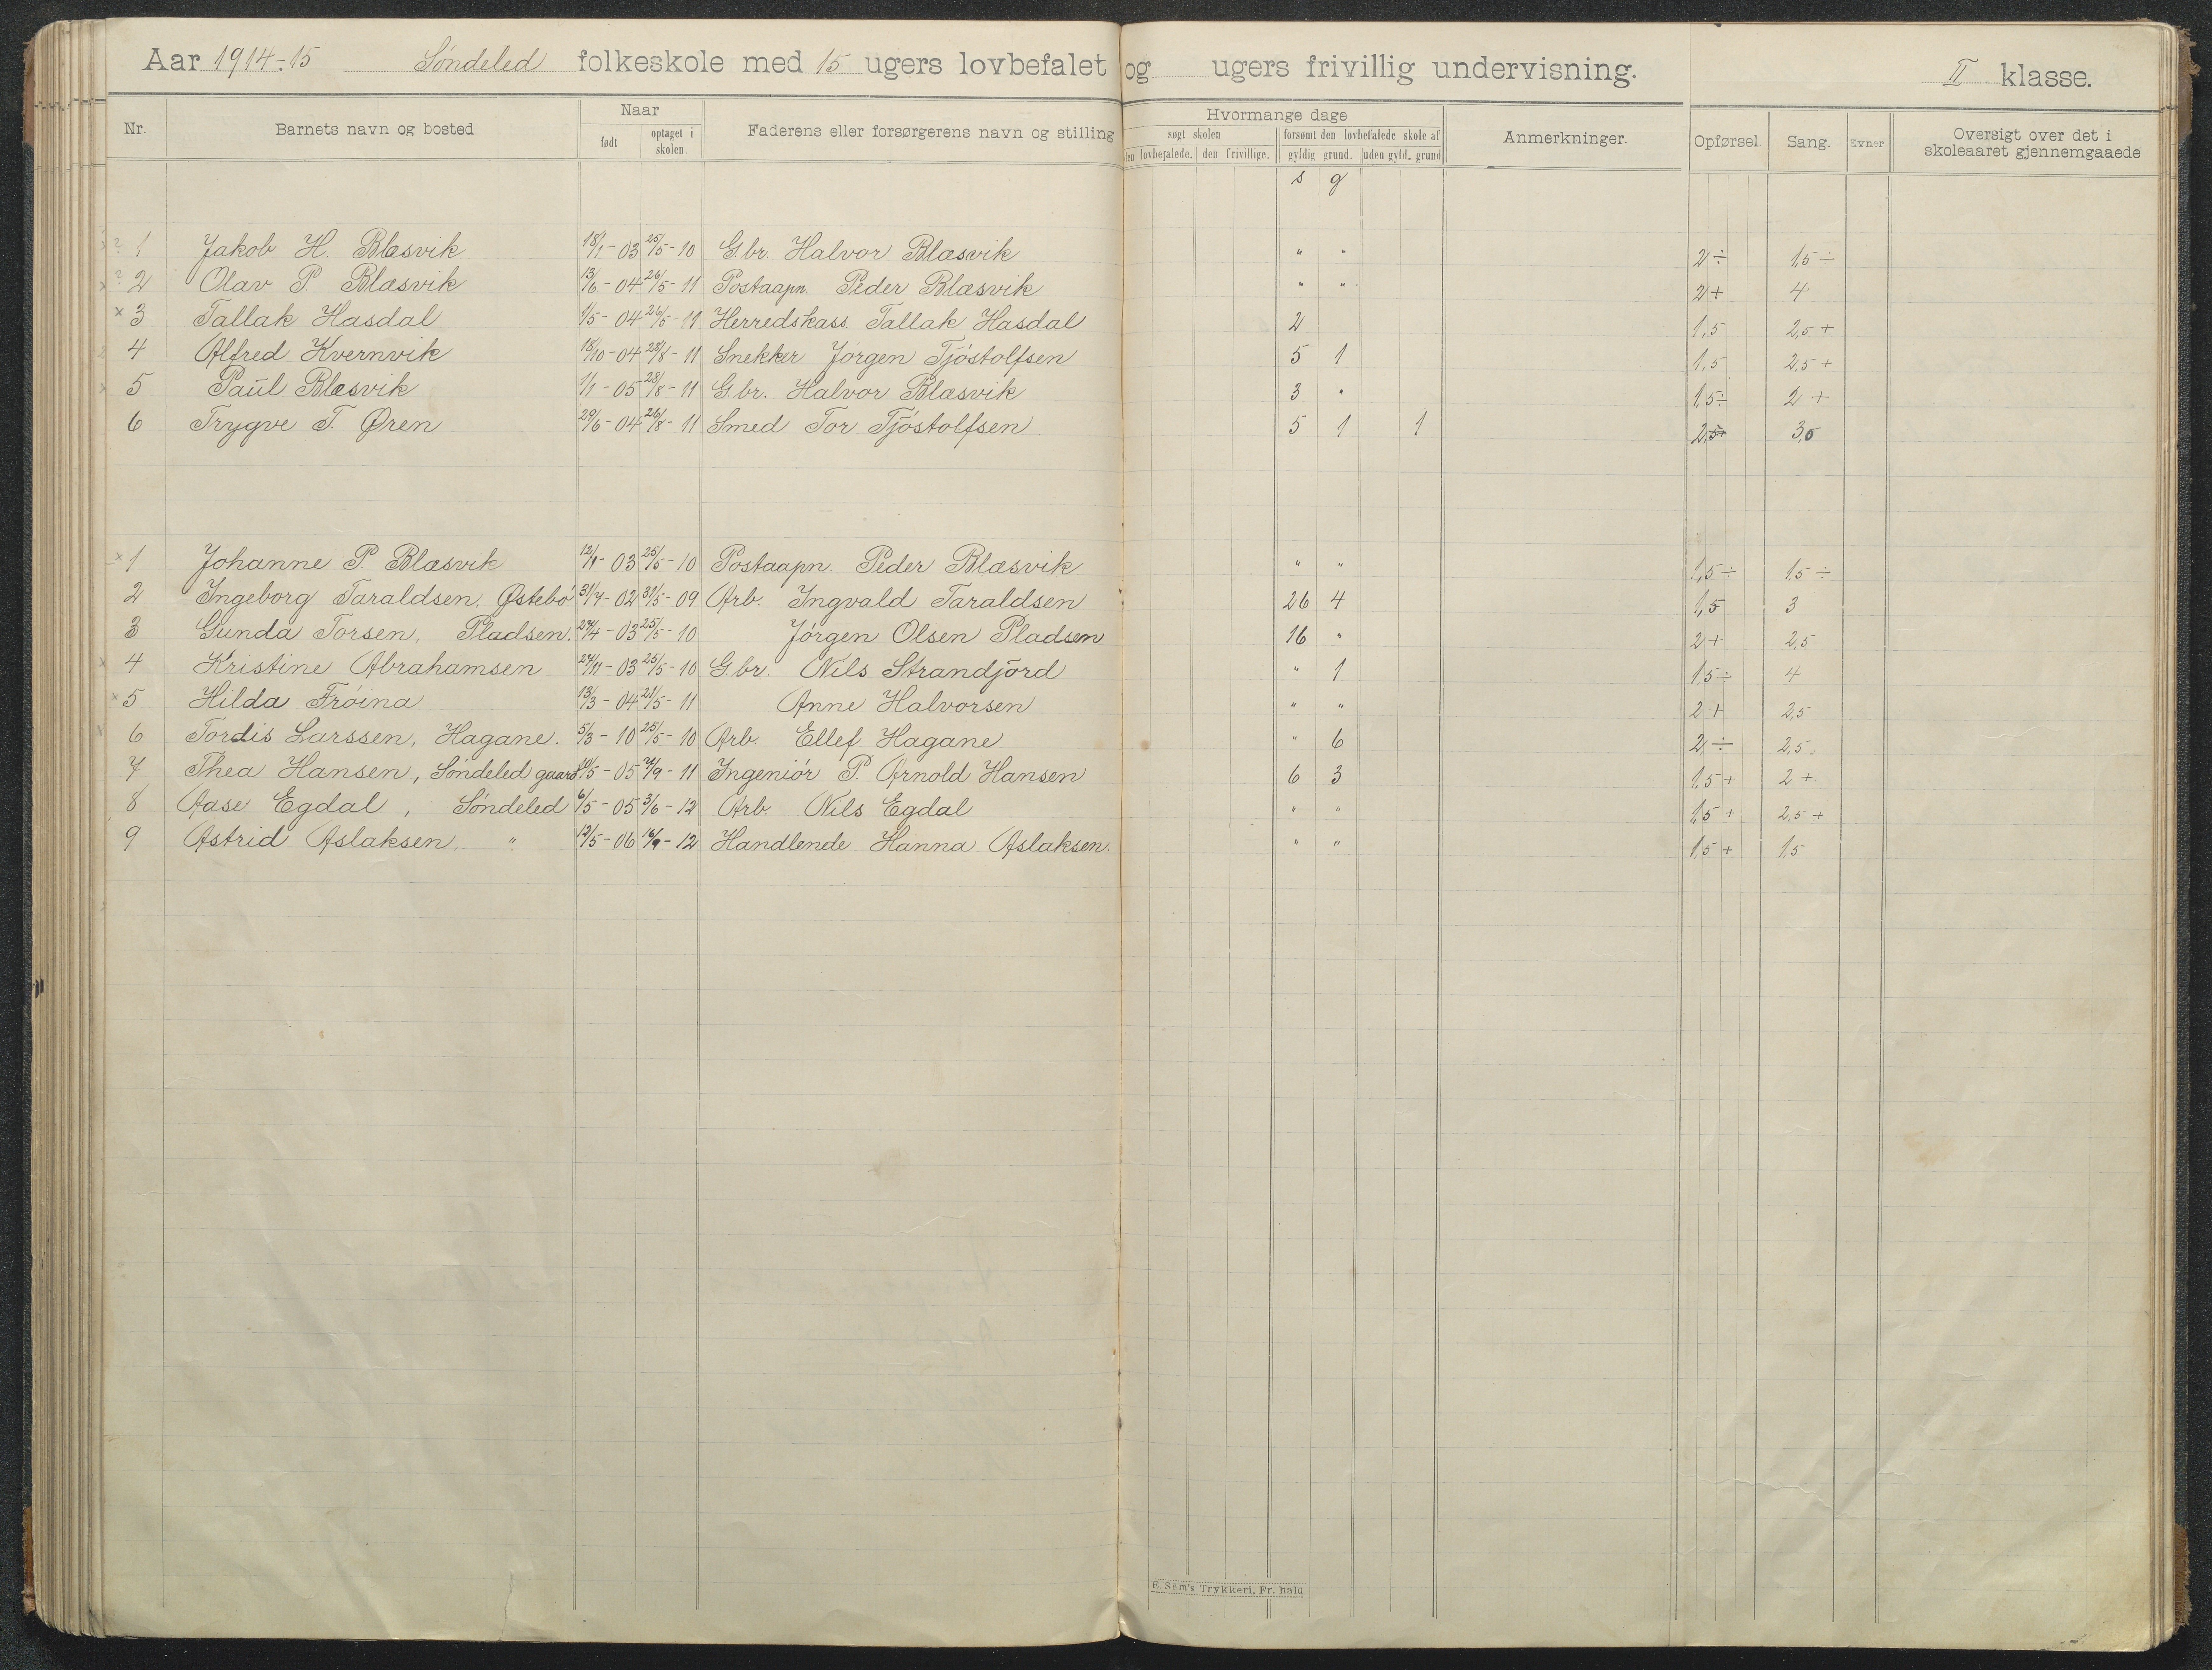 Aar 1914-15 Søndeled folkeskole med 15 ugers lovbefalet og ugers frivillig undervisning. II klasse.
Nr. Barnets navn og bosted Naar født optaget i skolen. Faderens eller forsørgerens navn og stilling Hvormange dage søgt skolen den lovbefalede. den frivillige. forsømt den lovbefalede skole af gyldig grund. uden gyld. grund Anmerkninger. Opførsel. Sang. Evner Oversigt over det i skoleaaret gjennemgaaede
s g
1 Jakob H. Blæsvik 18/1-03 25/5-10 G.br. Halvor Blæsvik " " 2÷ 1,5÷
2 Olav P. Blæsvik 13/6-04 26/5-11 Postaapn. Peder Blæsvik " " 2+ 4
3 Tallak Hasdal 1/5-04 26/5-11 Herredskass. Tallak Hasdal 2 1,5 2,5+
4 Alfred Kvernvik 18/10-04 28/8-11 Snekker Jørgen Tjøstolfsen 5 1 1,5 2,5+
5 Paul Blæsvik 1/1-05 28/8-11 G.br. Halvor Blæsvik 3 " 1,5÷ 2+
6 Trygve T. Øren 29/6-04 26/8-11 Smed Tor Tjøstolfsen 5 1 1 2,5 3,5
1 Johanne P. Blæsvik 12/11-03 25/5-10 Postaapn. Peder Blæsvik " " 1,5÷ 1,5÷
2 Ingeborg Taraldsen, Østebø 31/7-02 31/5-09 Arb. Ingvald Taraldsen 26 4 1,5 3
3 Gunda Torsen, Pladsen. 27/4-03 25/5-10 Jørgen Olsen Pladsen 16 " 2+ 2,5
4 Kristine Abrahamsen 27/11-03 25/5-10 G.br. Nils Strandjord " 1 1,5÷ 4
5 Hilda Frøina 13/3-04 21/5-11 Anne Halvorsen " " 2+ 2,5
6 Tordis Larssen, Hagane. 5/3-10 25/5-10 Arb. Ellef Hagane " 6 2÷ 2,5
7 Thea Hansen, Søndeled gaard /5-05 /9-11 Ingeniør P. Arnold Hansen 6 3 1,5+ 2+
8 Aase Egdal, Søndeled 6/5-05 3/6-12 Arb. Nils Egdal " " 1,5+ 2,5+
9 Astrid Aslaksen. " 12/5-06 16/9-12 Handlende Hanna Aslaksen. " " 1,5+ 1,5
E. Sem's Trykkeri, Fr.hald